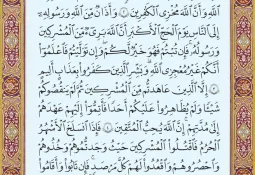 ٱللَّهِ وَأَنَّ ٱللَّهَ مُخْزِى ٱلْكَٰفِرِينَ ۝ وَأَذَٰنٌ مِّنَ ٱللَّهِ وَرَسُولِهِۦٓ
إِلَى ٱلنَّاسِ يَوْمَ ٱلْحَجِّ ٱلْأَكْبَرِ أَنَّ ٱللَّهَ بَرِىٓءٌ مِّنَ ٱلْمُشْرِكِينَ
وَرَسُولُهُۥ فَإِن تُبْتُمْ فَهُوَ خَيْرٌ لَّكُمْ وَإِن تَوَلَّيْتُمْ فَٱعْلَمُوٓا۟
أَنَّكُمْ غَيْرُ مُعْجِزِى ٱللَّهِ وَبَشِّرِ ٱلَّذِينَ كَفَرُوا۟ بِعَذَابٍ أَلِيمٍ
۝ إِلَّا ٱلَّذِينَ عَٰهَدتُّم مِّنَ ٱلْمُشْرِكِينَ ثُمَّ لَمْ يَنقُصُوكُمْ
شَيْـًٔا وَلَمْ يُظَٰهِرُوا۟ عَلَيْكُمْ أَحَدًا فَأَتِمُّوٓا۟ إِلَيْهِمْ عَهْدَهُمْ
إِلَىٰ مُدَّتِهِمْ إِنَّ ٱللَّهَ يُحِبُّ ٱلْمُتَّقِينَ ۝ فَإِذَا ٱنسَلَخَ ٱلْأَشْهُرُ
ٱلْحُرُمُ فَٱقْتُلُوا۟ ٱلْمُشْرِكِينَ حَيْثُ وَجَدتُّمُوهُمْ وَخُذُوهُمْ
وَٱحْصُرُوهُمْ وَٱقْعُدُوا۟ لَهُمْ كُلَّ مَرْصَدٍ فَإِن تَابُوا۟ وَأَقَامُوا۟